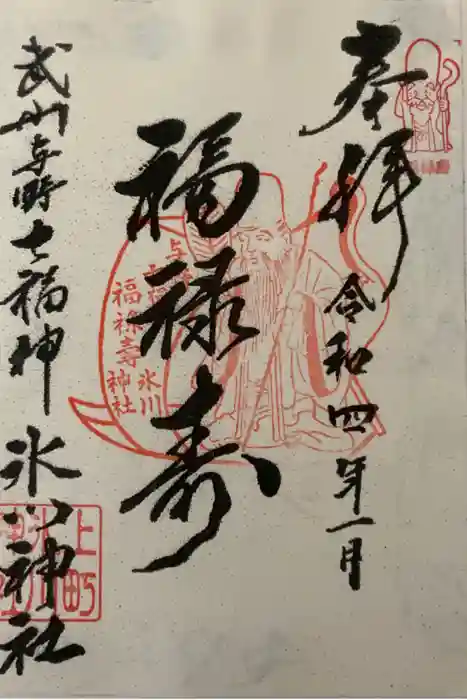 奉拝
令和四年一月
福禄寿
与野七福神
福祿壽
氷川
神社
武州与野七福神 氷川神社
上町
氷川
神社